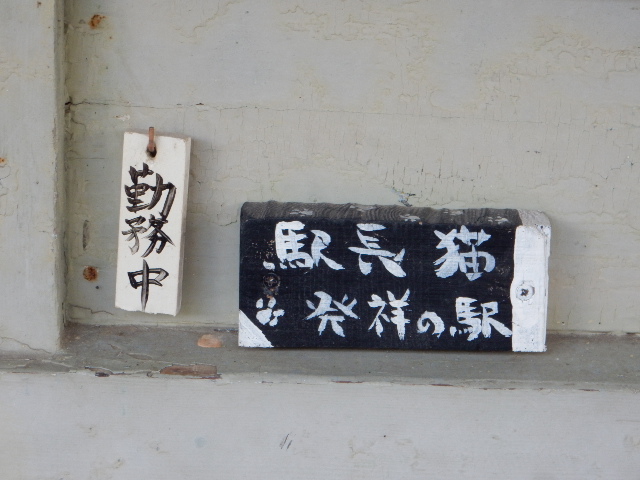 勤務中
駅長猫
発祥の駅